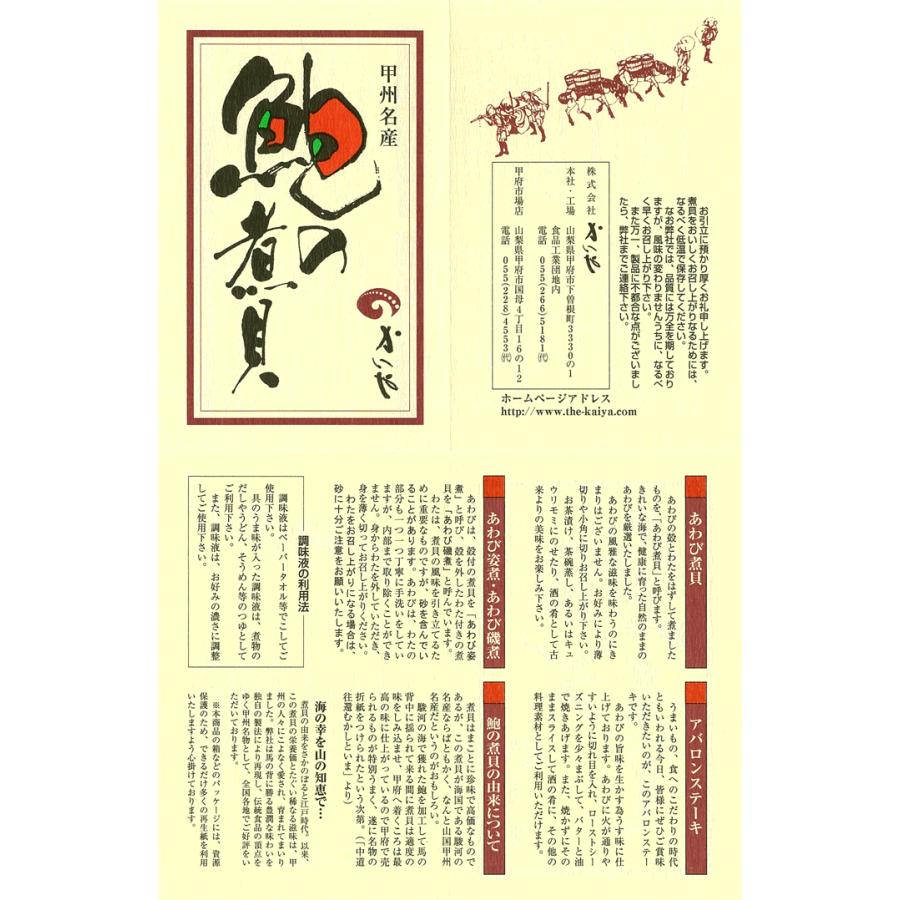 甲州名産
鮑の
煮貝
かいや
お引立に預かり厚くお礼申し上げます。
煮貝をおいしくお召し上がりなるためには、
なるべく低温で保存してください。
なお弊社では、品質には万全を期しており
ますが、風味の変わりませんうちに、なるべ
く早くお召し上がり下さい。
また万一、製品に不都合な点がございまし
たら、弊社までご連絡下さい。
株式会社 かいや
本社・工場 山梨県甲府市下曽根町3330の1
食品工業団地内
電話 055(266)5181㈹
甲府市場店 山梨県甲府市国母4丁目16の12
電話 055(228)4553㈹
ホームページアドレス
http://www.the-kaiya.com
あわび煮貝
あわびの殻とわたをはずして煮ました
ものを、「あわび煮貝」と呼びます。
きれいな海で、健康に育った自然のままの
あわびを厳選いたしました。
あわびの風雅な滋味を味わうのにき
まりはございません。お好みにより薄
切りや小角に切りお召し上がり下さい。
お茶漬け、茶碗蒸し、あるいはキュ
ウリモミにのせたり、酒の肴として古
来よりの美味をお楽しみ下さい。
あわび姿煮・あわび磯煮
あわびは、殻付の煮貝を「あわび姿
煮」と呼び、殻を外したわた付きの煮
貝を「あわび磯煮」と呼んでいます。
わたは、煮貝の風味を引き立てるた
めに重要なものですが、砂を含んでい
ることがあります。あわびは、わたの
部分も一つ一つ丁寧に手洗いをしてい
ますが、内部まで取り除くことができ
ません。身からわたを外していただき、
身を薄く切ってお召し上がりください。
わたをお召し上がりになる場合は、
砂に十分ご注意をお願いいたします。
調味液の利用法
調味液はペーパータオル等でこしてご
使用下さい。
具のうま味が入った調味液は、煮物の
だしやうどん、そうめん等のつゆとして
ご利用下さい。
また、調味液は、お好みの濃さに調整
してご使用下さい。
アバロンステーキ
うまいもの、食へのこだわりの時代
ともいわれる今日、皆様にぜひご賞味
いただきたいのが、このアバロンステー
キです。
あわびの旨味を生かす為うす味に仕
上げております。あわびに火が通りや
すいように切れ目を入れ、ローストシー
ズニングを少々まぶして、バターと油
で焼きあげます。また、焼かずにその
ままスライスして酒の肴に、その他の
料理素材としてご利用いただけます。
鮑の煮貝の由来について
煮貝はまことに珍味で高価なもので
あるが、この煮貝が海国である駿河の
名産ならばともかく、なんと山国甲州
名産だというのがおもしろい。
駿河の海で獲れた鮑を加工して馬の
背中に揺られて来る間に煮貝は適度の
味をしみ込ませ、甲府へ着くころは最
高の味に仕上がっているので甲府で売
られるものが特別うまく、遂に名物の
折紙をつけられたという次第。(「中道
往還むかしといま」より)
海の幸を山の知恵で…
煮貝の由来をさかのぼると江戸時代。以来、
この煮貝の栄養価とたぐい稀なる滋味は、甲
州の人々にこよなく愛され、育まれてまいり
ました。弊社は馬の背に勝る豊潤な味わいを
独自の製法により再現し、伝統食品の頂点を
ゆく甲州名物として、全国各地でご好評をい
ただいております。
※本商品の箱などのパッケージには、資源
保護のため、できるだけ多くの再生紙を利用
いたしますよう心掛けております。